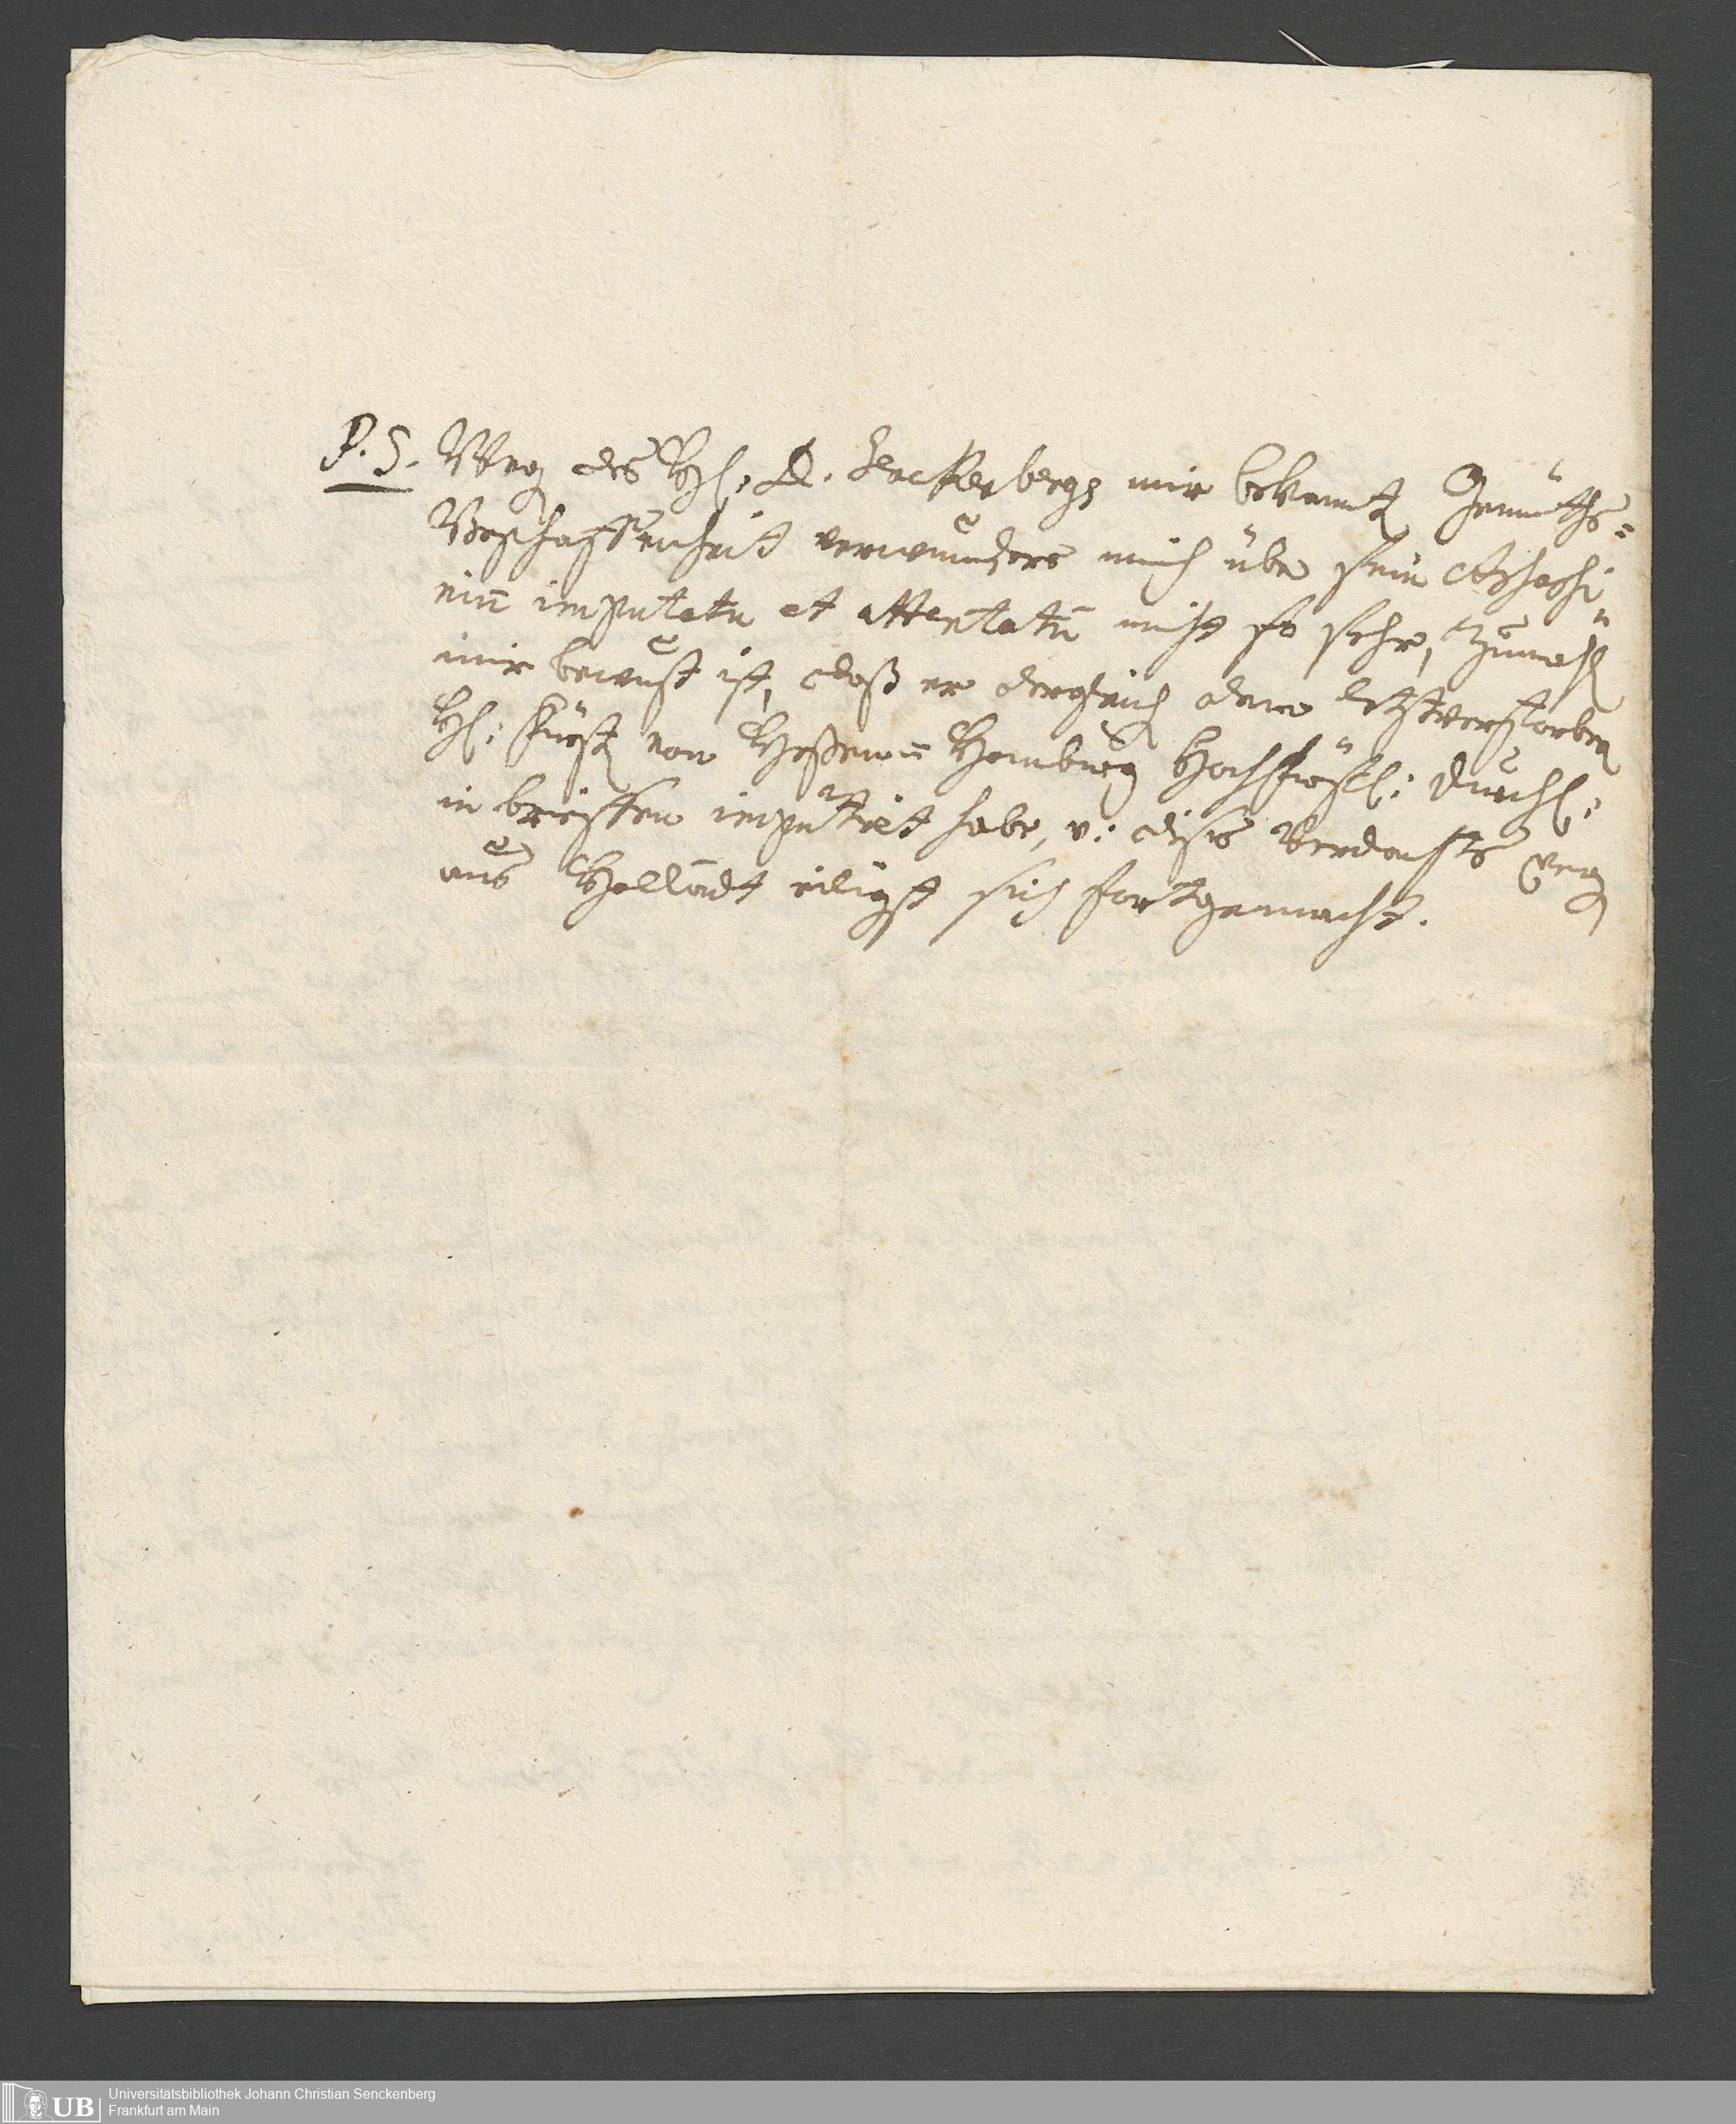 P. S. Weg des Hl: D. Senckenbergs mir bekannt Gemüths=
Beschaffenheit verwundere mich über sein Assassi
nium imputatu et attentatū nicht so sehr, zumahl
mir bewust ist, daß er dergleich dem letztverstorben
Hl: Fürst von Heßen Homburg Hochfürstl: Durchl:
in brieffen imputirt habe, v: dises Verdachts weg
aus Hollādt eiligst sich fortgemacht.
UB
Universitätsbibliothek Johann Christian Senckenberg
Frankfurt am Main